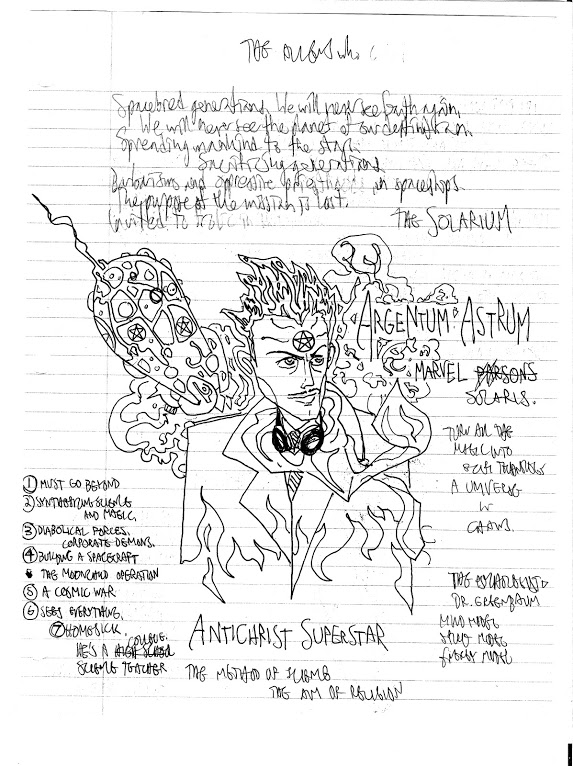 THE ALIENS who
Spacebred generations. We will never see Earth again.
We will never see the planet of our destination.
Spreading mankind to the stars.
Sacrificing generations
Barbarisms and oppressive in spaceships.
The purpose of the mission is lost.
Invited to
THE SOLARIUM
ARGENTUM ASTRUM
MARVEL PARSONS
SOLARIS.
TURN ALL THE
MAGIC INTO
A UNIVERSE
IN
CHAOS.
① MUST GO BEYOND
② SYNTHESIZING SCIENCE
AND MAGIC.
③ DIABOLICAL FORCES.
CORPORATE DEMONS.
④ BUILDING A SPACECRAFT
THE MOONCHILD OPERATION
⑤ A COSMIC WAR
⑥ SEES EVERYTHING.
⑦ HOMESICK.
COLLEGE
HE'S A HIGH SCHOOL
SCIENCE TEACHER
THE
DR.
MIND MODEL
ANTICHRIST SUPERSTAR
THE METHOD OF SCIENCE
THE AIM OF RELIGION